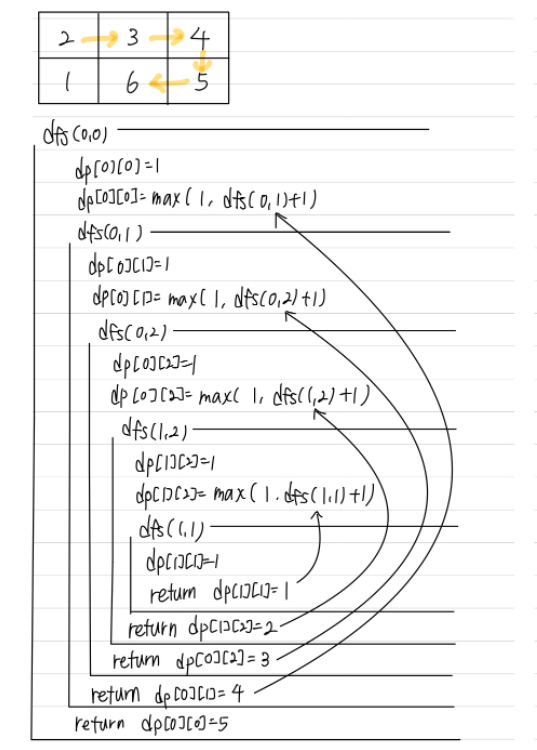 2 → 3 → 4
1 6 ← 5
dfs(0,0)
dp[0][0]=1
dp[0][0]=max(1, dfs(0,1)+1)
dfs(0,1)
dp[0][1]=1
dp[0][1]=max(1, dfs(0,2)+1)
dfs(0,2)
dp[0][2]=1
dp[0][2]=max(1, dfs(1,2)+1)
dfs(1,2)
dp[1][2]=1
dp[1][2]=max(1.dfs(1,1)+1)
dfs(1,1)
dp[1][1]=1
return dp[1][1]=1
return dp[1][2]=2
return dp[0][2]=3
return dp[0][1]=4
return dp[0][0]=5